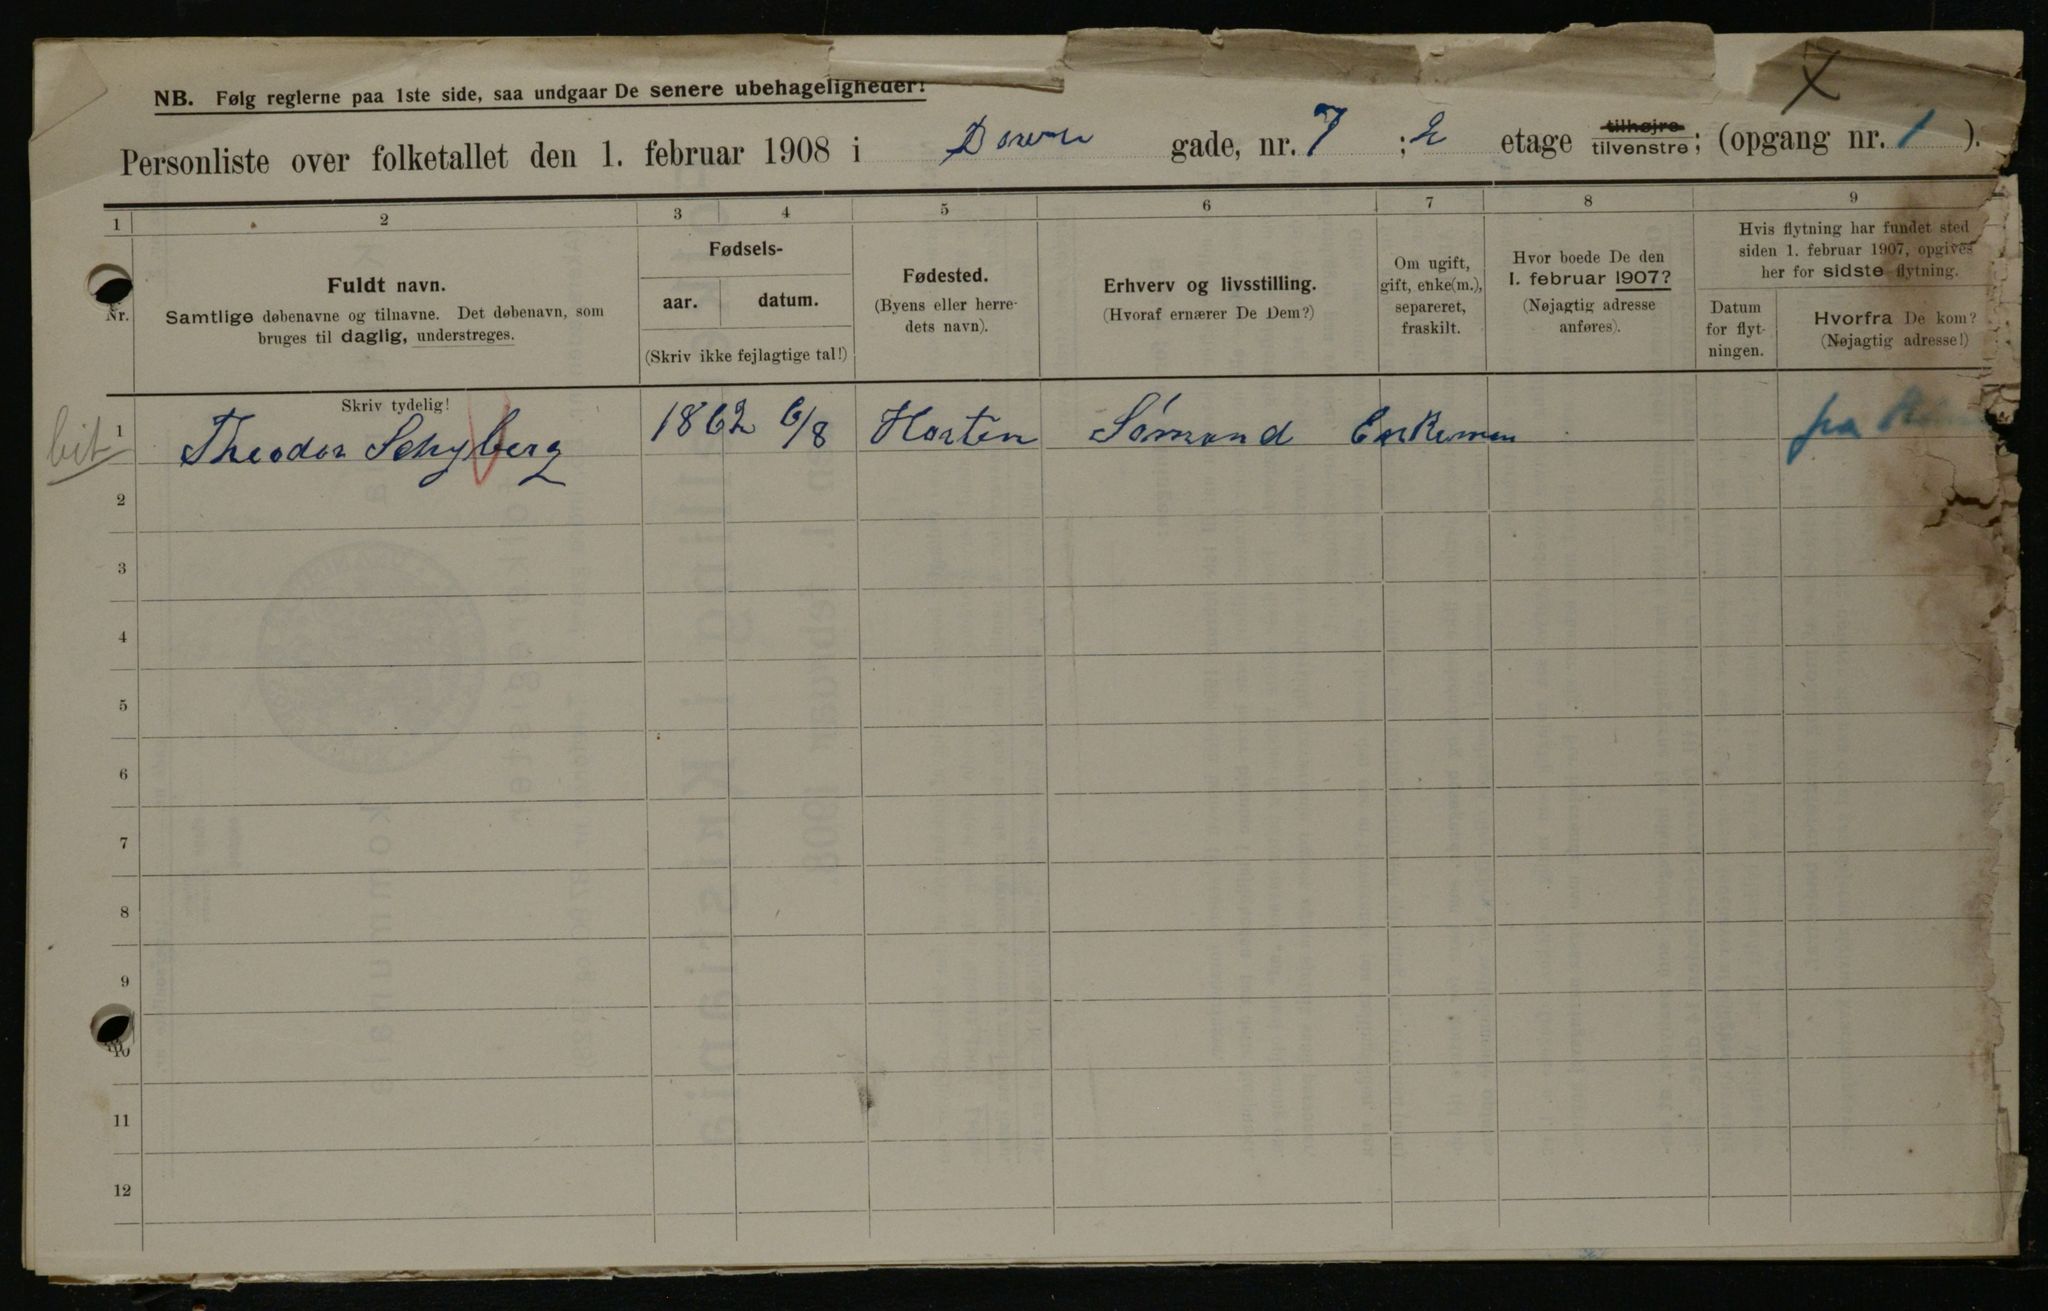 NB. Følg reglerne paa 1ste side, saa undgaar De senere ubehageligheder!
Personliste over folketallet den 1. februar 1908 i gade, nr. 7 ; 2 etage tilhøjre tilvenstre; (opgang nr. 1 ).
1 2 3 4 5 6 7 8 9
Nr.
Fuldt navn.
Samtlige døbenavne og tilnavne. Det døbenavn, som
bruges til daglig, understreges.
Fødsels-
aar. datum.
(Skriv ikke fejlagtige tal!)
Fødested.
(Byens eller herre-
dets navn).
Erhverv og livsstilling.
(Hvoraf ernærer De Dem?)
Om ugift,
gift, enke(m.),
separeret,
fraskilt.
Hvor boede De den
1. februar 1907?
(Nøjagtig adresse
anføres).
Hvis flytning har fundet sted
siden 1. februar 1907, opgives
her for sidste flytning.
Datum
for flyt-
ningen.
Hvorfra De kom?
(Nøjagtig adresse!)
Skriv tydelig!
bit
1 Theodor Schyberg 1862 6/8 Horten Sømand Enkeman fra
2
3
4
5
6
7
8
9
10
11
12